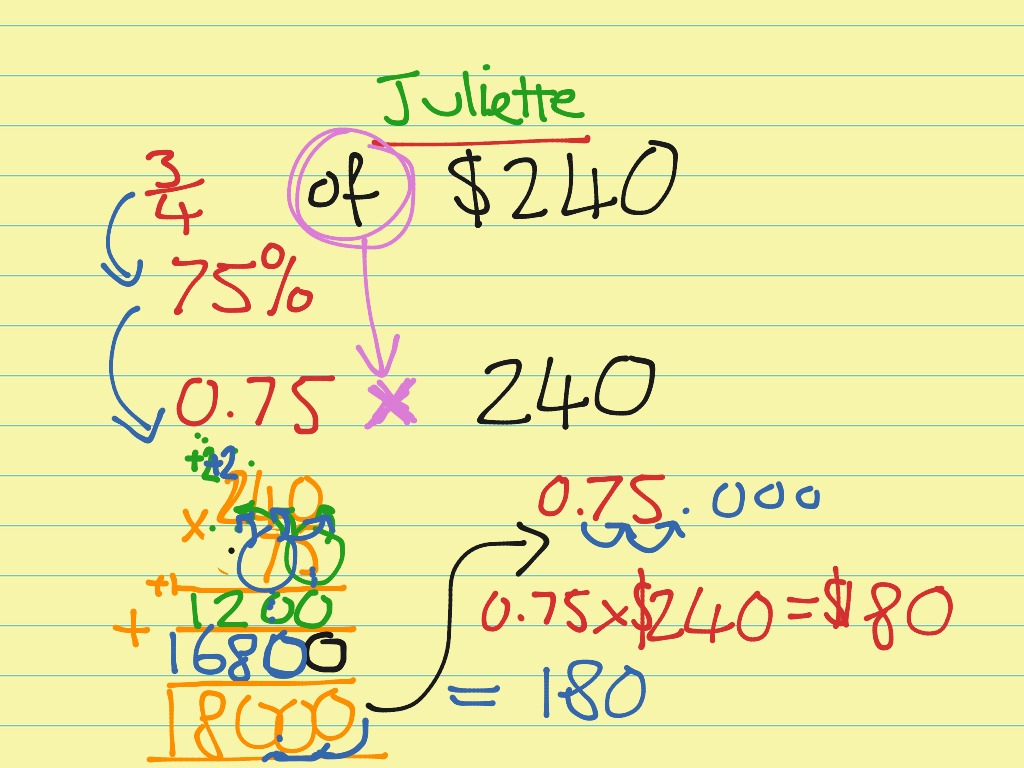 Juliette
3/4 of $240
75%
0.75 × 240
+2 +2
240
× 75
+1
1200
+ 16800
18000
0.75.000
0.75×$240=$180
= 180